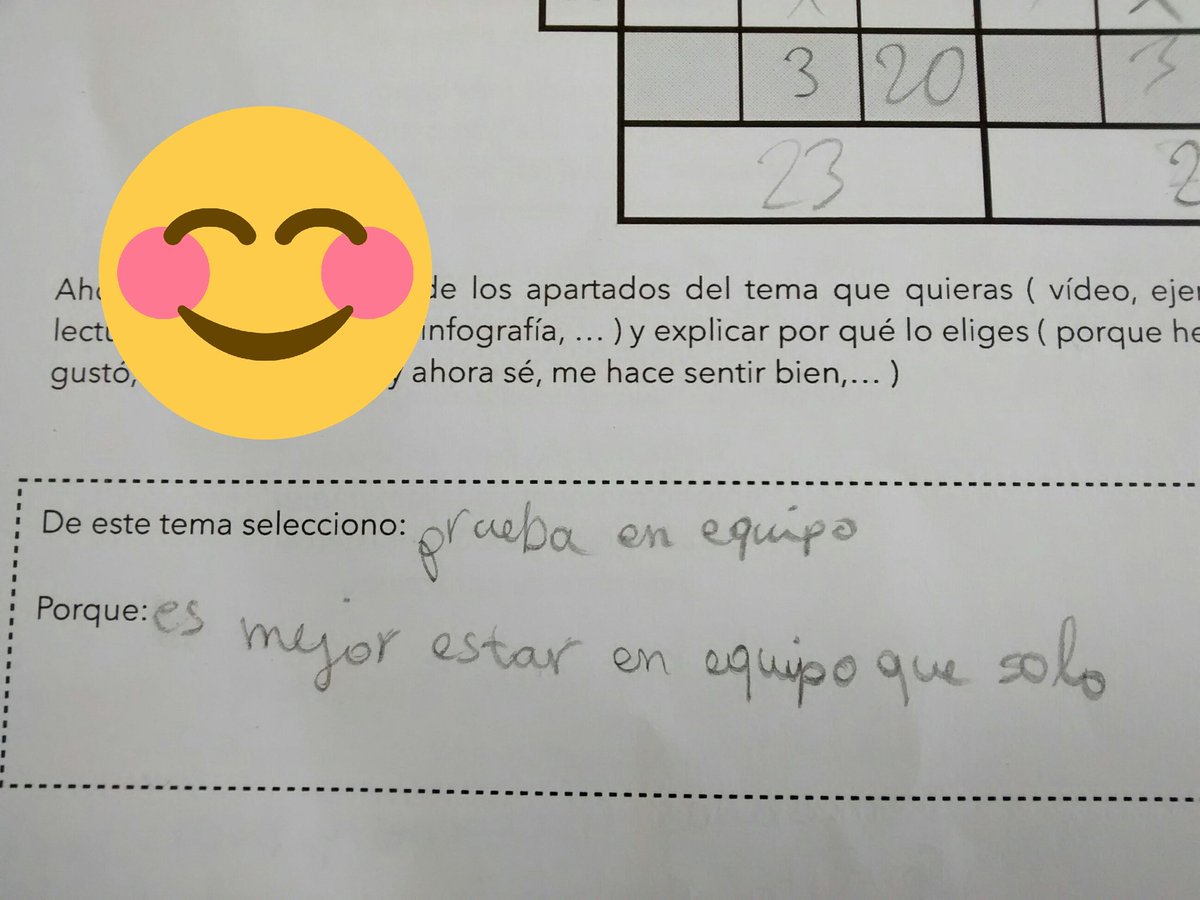 3 20 3
23 2
de los apartados del tema que quieras ( vídeo,
infografía, ... ) y explicar por qué lo eliges ( porque
gustó, y ahora sé, me hace sentir bien,... )
De este tema selecciono: prueba en equipo
Porque: es mejor estar en equipo que solo